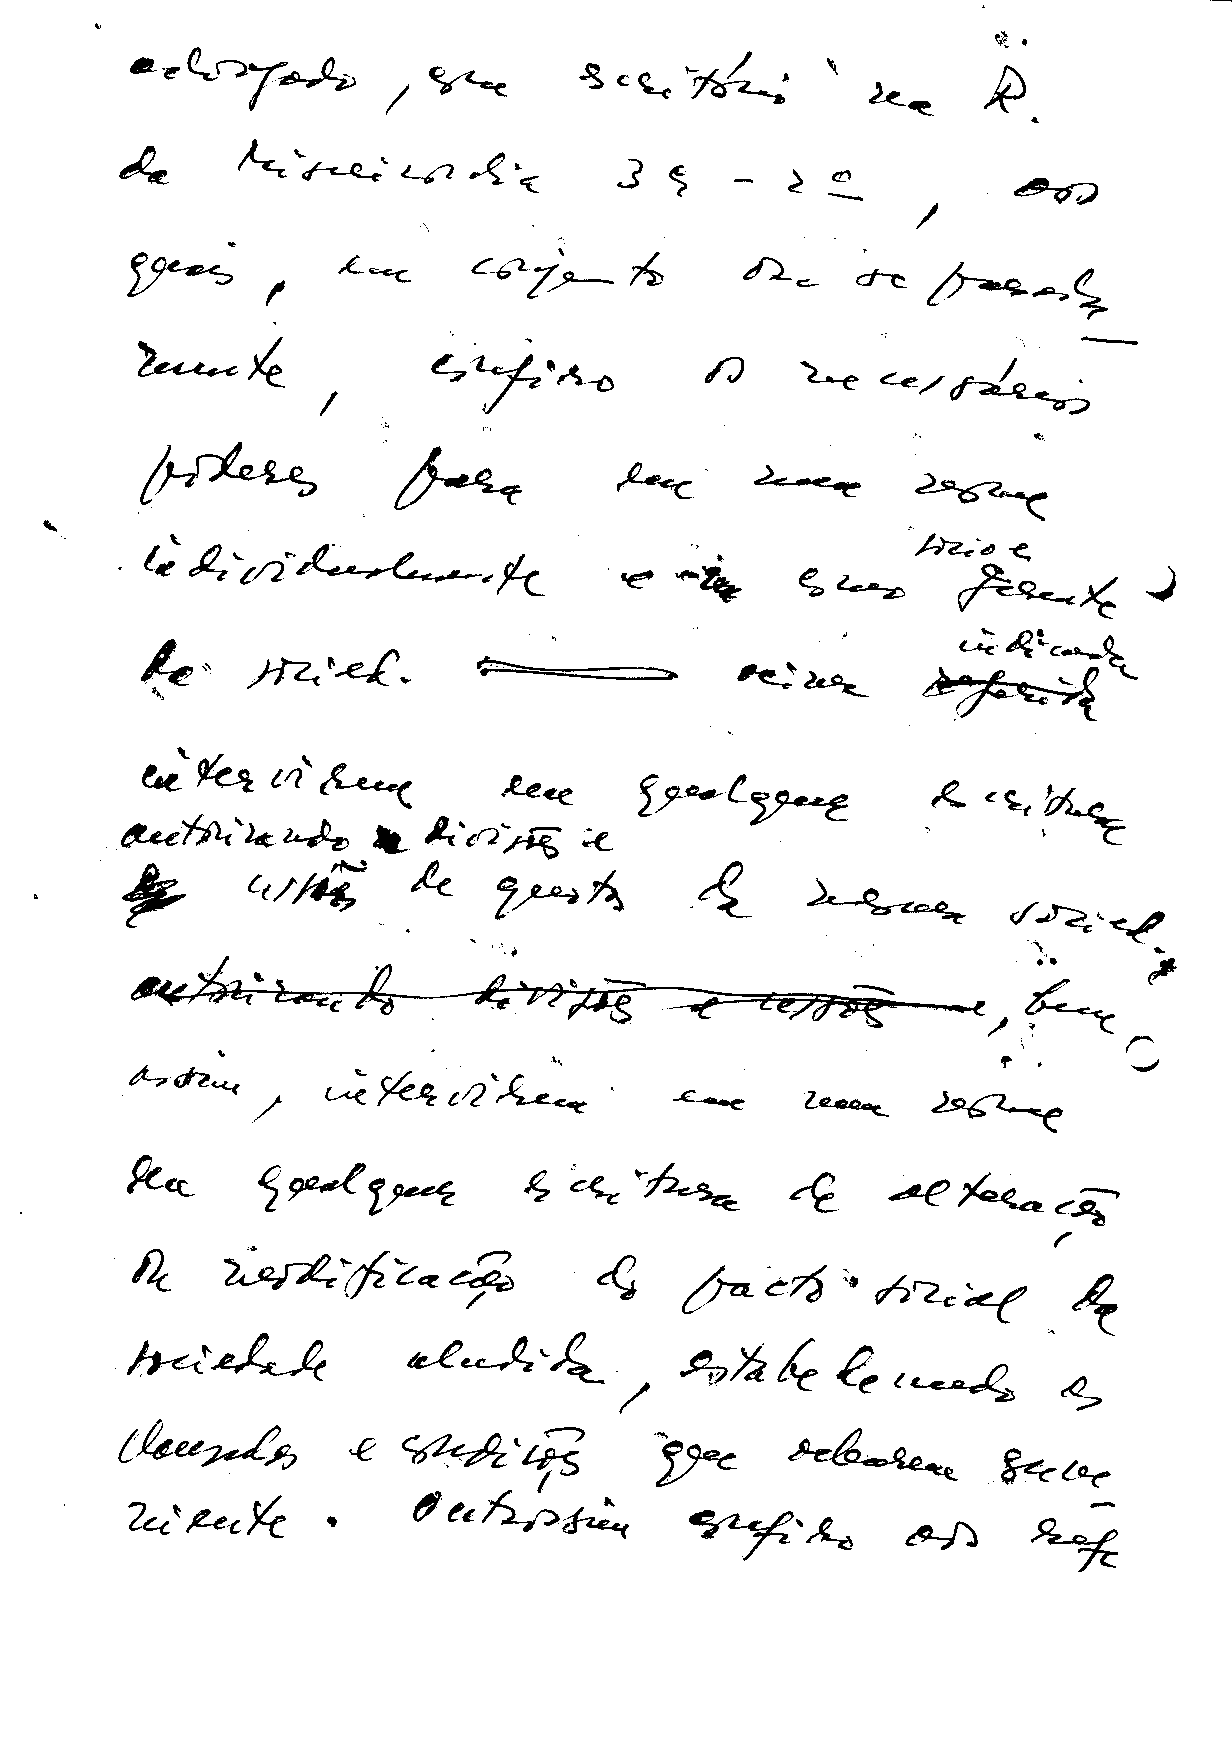 advogado, com escritório na R.
da Misericordia 39 - 2º, aos
quais, em conjunto ou separada
mente, confiro os necessários
poderes para em meu nome
individualmente e como sócio e gerente
da socied. acima indicada referida
intervirem em qualquer escritura
autorizando divisões e
cessões de quotas da mesma socied.
autorizando divisões e cessões e, bem
assim, intervirem em meu nome
em qualquer escritura de alteração
ou modificação do pacto social da
sociedade aludida, estabelecendo as
clausulas e condições que acharem conve
niente. Outrossim confiro aos refe